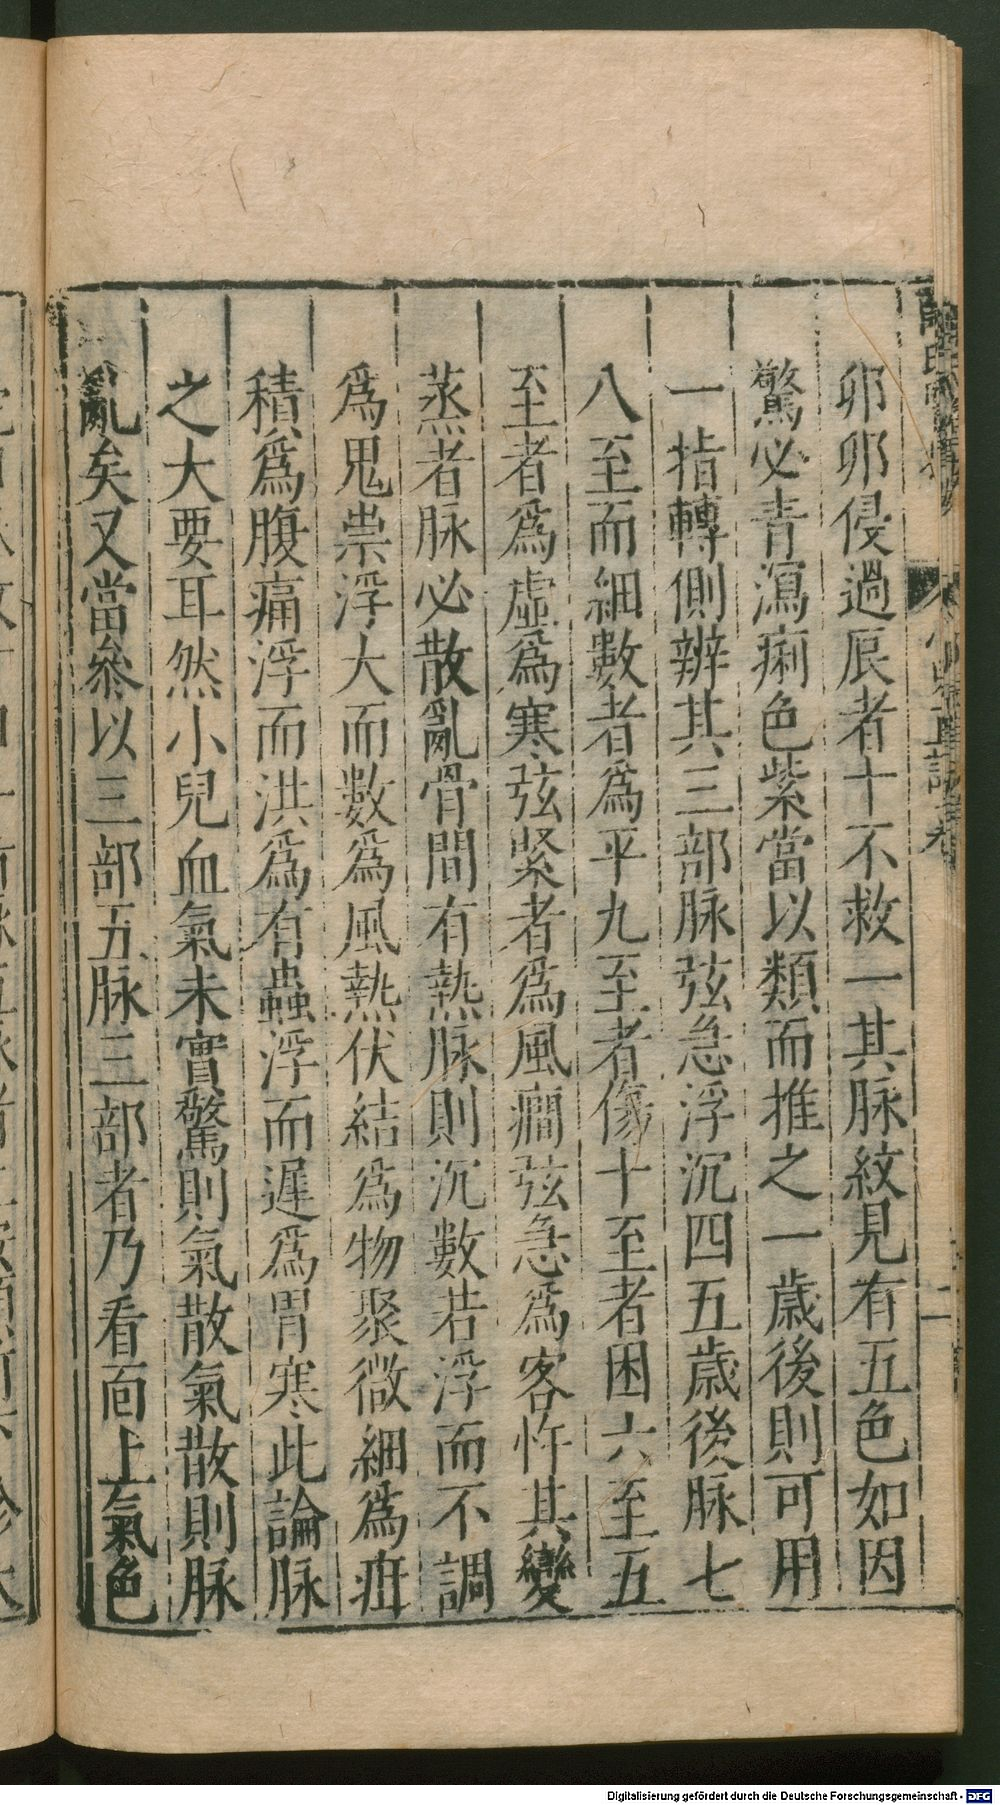 卯卯侵過辰者十不救一其脉紋見有五色如因
驚必青瀉痢色紫當以類而推之一歲後則可用
一指轉側辨其三部脉弦急浮沉四五歲後脉七
八至而細數者為平九至者傷十至者困六至五
至者為虛為寒弦緊者為風癎弦急為客忤其變
蒸者脉必散亂骨間有熱脉則沉數若浮而不調
為鬼祟浮大而數為風熱伏結為物聚微細為疳
積為腹痛浮而洪為有蟲浮而遲為胃寒此論脉
之大要耳然小兒血氣未實驚則氣散氣散則脉
亂矣又當叅以三部五脉三部者乃看面上氣色
Digitalisierung gefördert durch die Deutsche Forschungsgemeinschaft - DFG